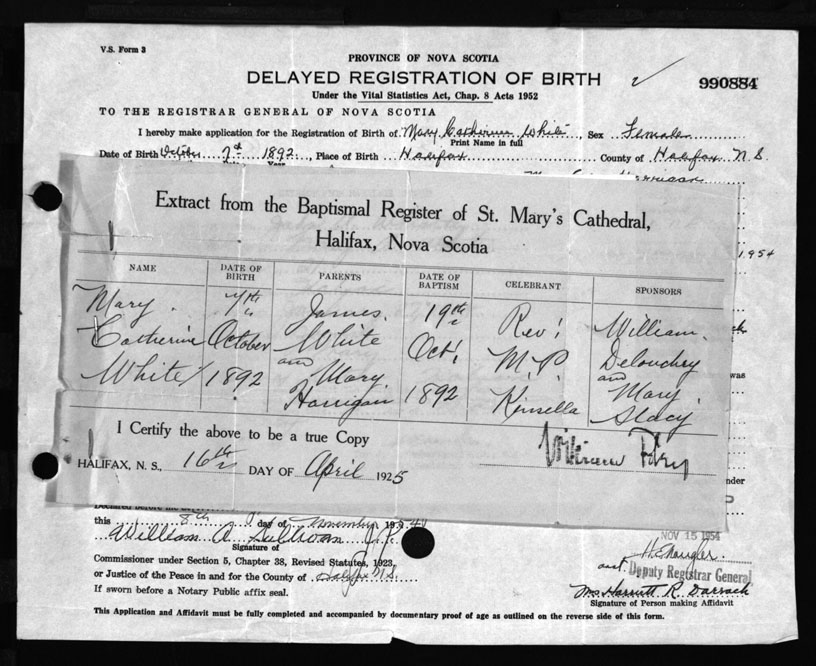 V.S. Form 3
PROVINCE OF NOVA SCOTIA
DELAYED REGISTRATION OF BIRTH
990884
Under the Vital Statistics Act, Chap. 8 Acts 1952
TO THE REGISTRAR GENERAL OF NOVA SCOTIA
I hereby make application for the Registration of Birth of Mary Catherine White, Sex Female
Print Name in full
Date of Birth October 7th 1892, Place of Birth Halifax County of Halifax N S.
Extract from the Baptismal Register of St. Mary's Cathedral,
Halifax, Nova Scotia
1954
NAME DATE OF BIRTH PARENTS DATE OF BAPTISM CELEBRANT SPONSORS
Mary 7th James 19th Rev. William
Catherine October White Oct. M. P. Delouchry
White 1892 and Mary 1892 Kinsella and Mary
Horrigan Stacy
was
I Certify the above to be a true Copy
HALIFAX, N. S., 16th DAY OF April 1925
this 8th day of November
William A. Sullivan J.P.
Signature of
NOV 15 1954
Commissioner under Section 5, Chapter 38, Revised Statutes, 1923,
Deputy Registrar General
or Justice of the Peace in and for the County of Halifax N.S.
Mrs Harriett R. Darrach
If sworn before a Notary Public affix seal.
Signature of Person making Affidavit
This Application and Affidavit must be fully completed and accompanied by documentary proof of age as outlined on the reverse side of this form.